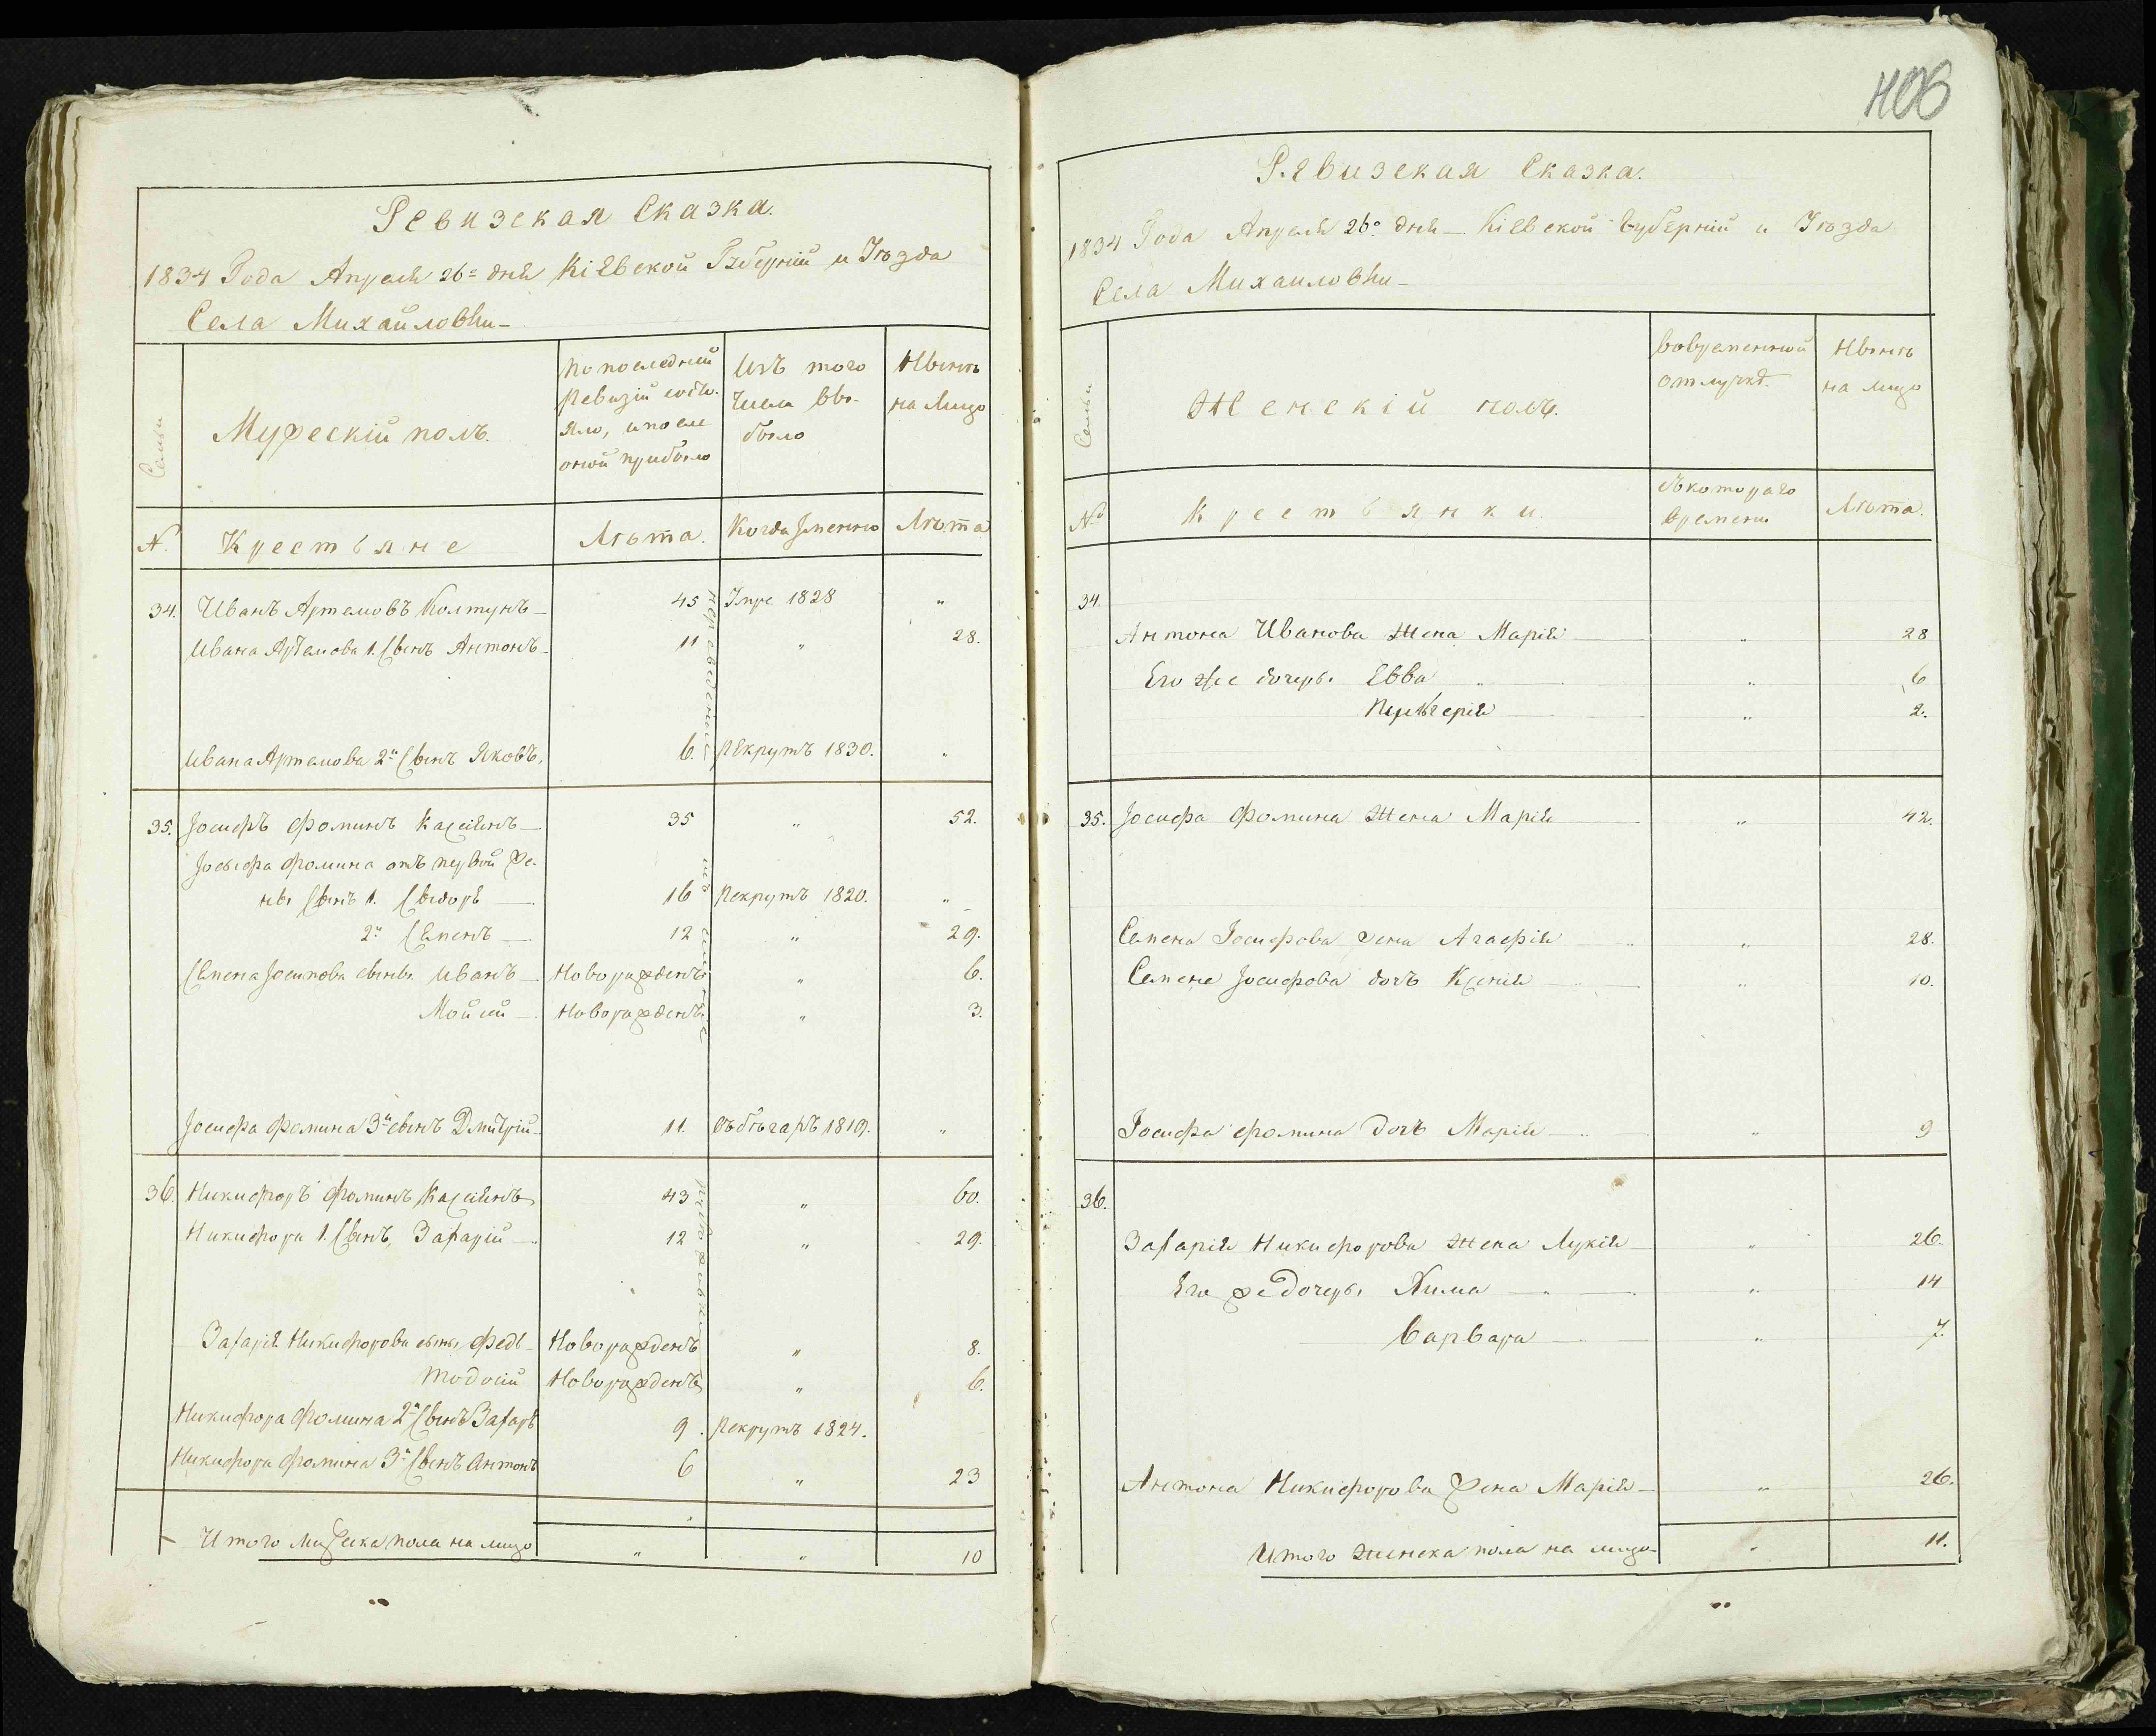 Ревизская Сказка.
1834 Года Апреля 26= дня Кіевской Губерніи и Уѣзда
Села Михайловки
Семьи
Мужескій полъ.
По последней
Ревизіи состо-
яло, и после
оной прибыло
Изъ того
числа вы-
было
Нынѣ
на лицо
№.
Крестьяне
Лѣта.
Когда Іменно
Лѣта
34. Иванъ Артемовъ Колтунъ 45 Умре 1828 "
Ивана Артемова 1. Сынъ Антонъ 11 " 28.
Ивана Артемова 2й Сынъ Яковъ. 6. Рекрутъ 1830. "
35. Іосифъ Фоминъ Касіянъ 35 " 52.
Іосифа Фомина отъ первой Же-
ны Сынъ 1. Сыдоръ 16 Рекрутъ 1820. "
2й Семенъ 12 " 29.
Семена Іосипова сыны Иванъ Новорожденъ " 6.
Мойсій Новорожденъ " 3.
Іосифа Фомина 3й сынъ Дмитрій 11. Збѣгаръ 1819. "
36. Никифоръ Фоминъ Касіянъ 43 " 60.
Никифора 1. Сынъ, Захарій 12 " 29.
Захарія Никифорова сыны Федь Новорожденъ " 8.
Тодосій Новорожденъ " 6.
Никифора Фомина 2й Сынъ Захаръ 9. Рекрутъ 1824.
Никифора Фомина 3й Сынъ Антонъ 6 " 23
Итого Мужеска пола на лицо " " 10
переведеніи
изъ имѣніе
406
Ревизская Сказка.
1834 Года Апреля 26: дня Кіевской Губерніи и Уѣзда
Села Михаиловки
Семьи
Женскій полъ.
Вовременной
отлучкѣ.
Нынѣ
на лицо
№
Крестьянки.
Съкотораго
времени
Лѣта.
34.
Антона Иванова Жена Марія " 28
Его же дочеры Евва " 6
Пульхерія " 2.
35. Іосифа Фомина Жена Марія " 42.
Семена Іосифова Жена Агафія " 28.
Семена Іосифова дочъ Ксенія " 10.
Іосифа Фомина Дочъ Марія " 9
36.
Захарія Никифорова Жена Лукія " 26.
Его же Дочеры Хима " 14
Варвара " 7.
Антона Никифорова Жена Марія " 26.
Итого Женска пола на лицо " 11.